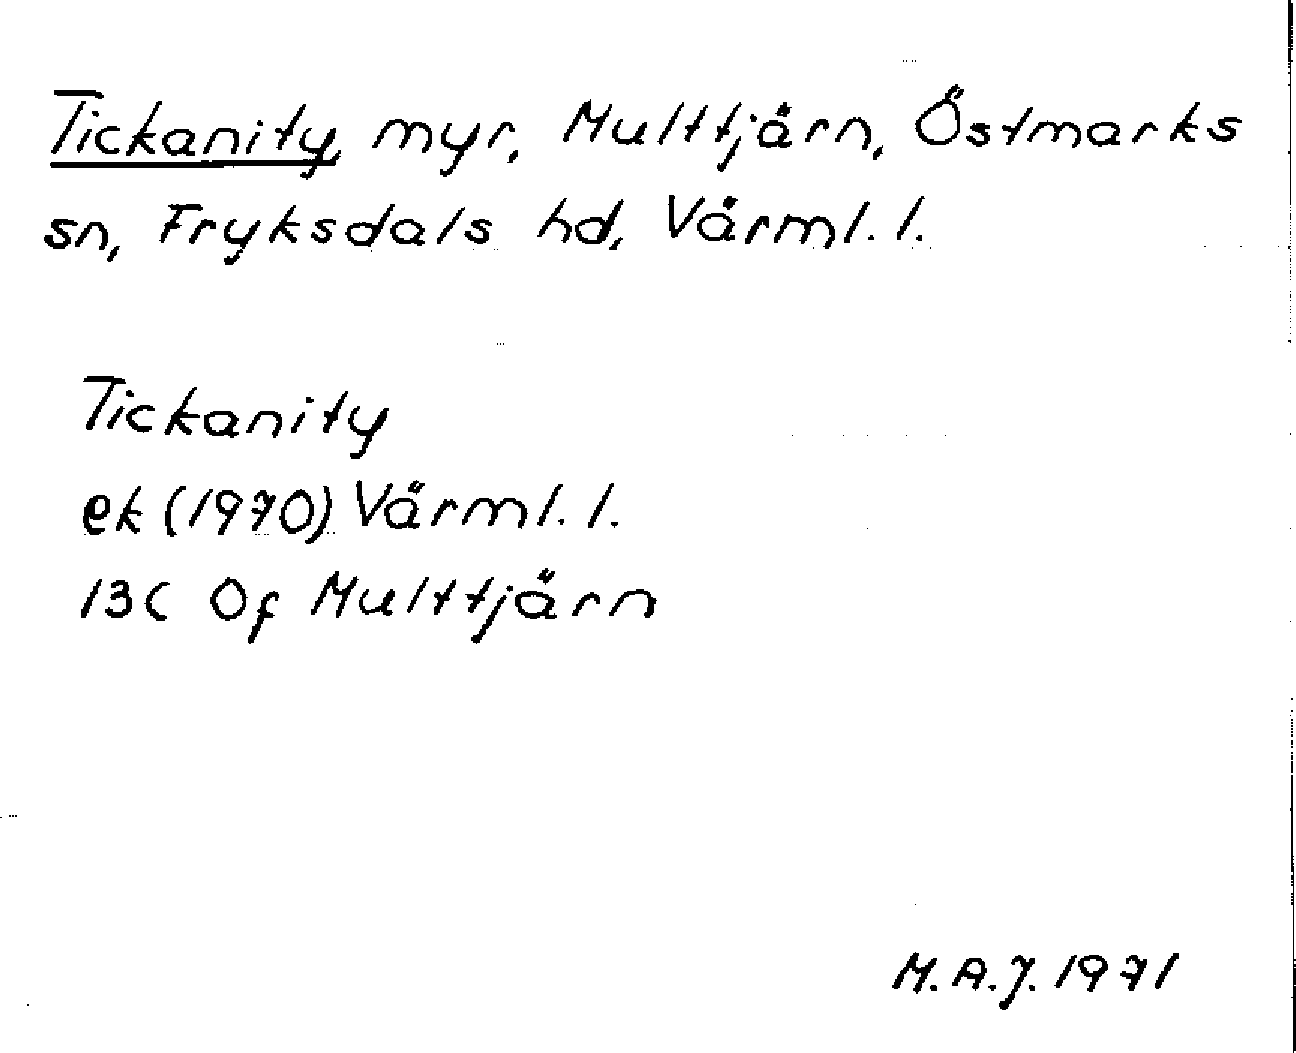 Tickanity, myr, Multtjärn, Östmarks
sn, Fryksdals hd, Värml. l.
Tickanity
ek (1970) Värml. l.
13C 0f Multtjärn
M.A.J. 1971